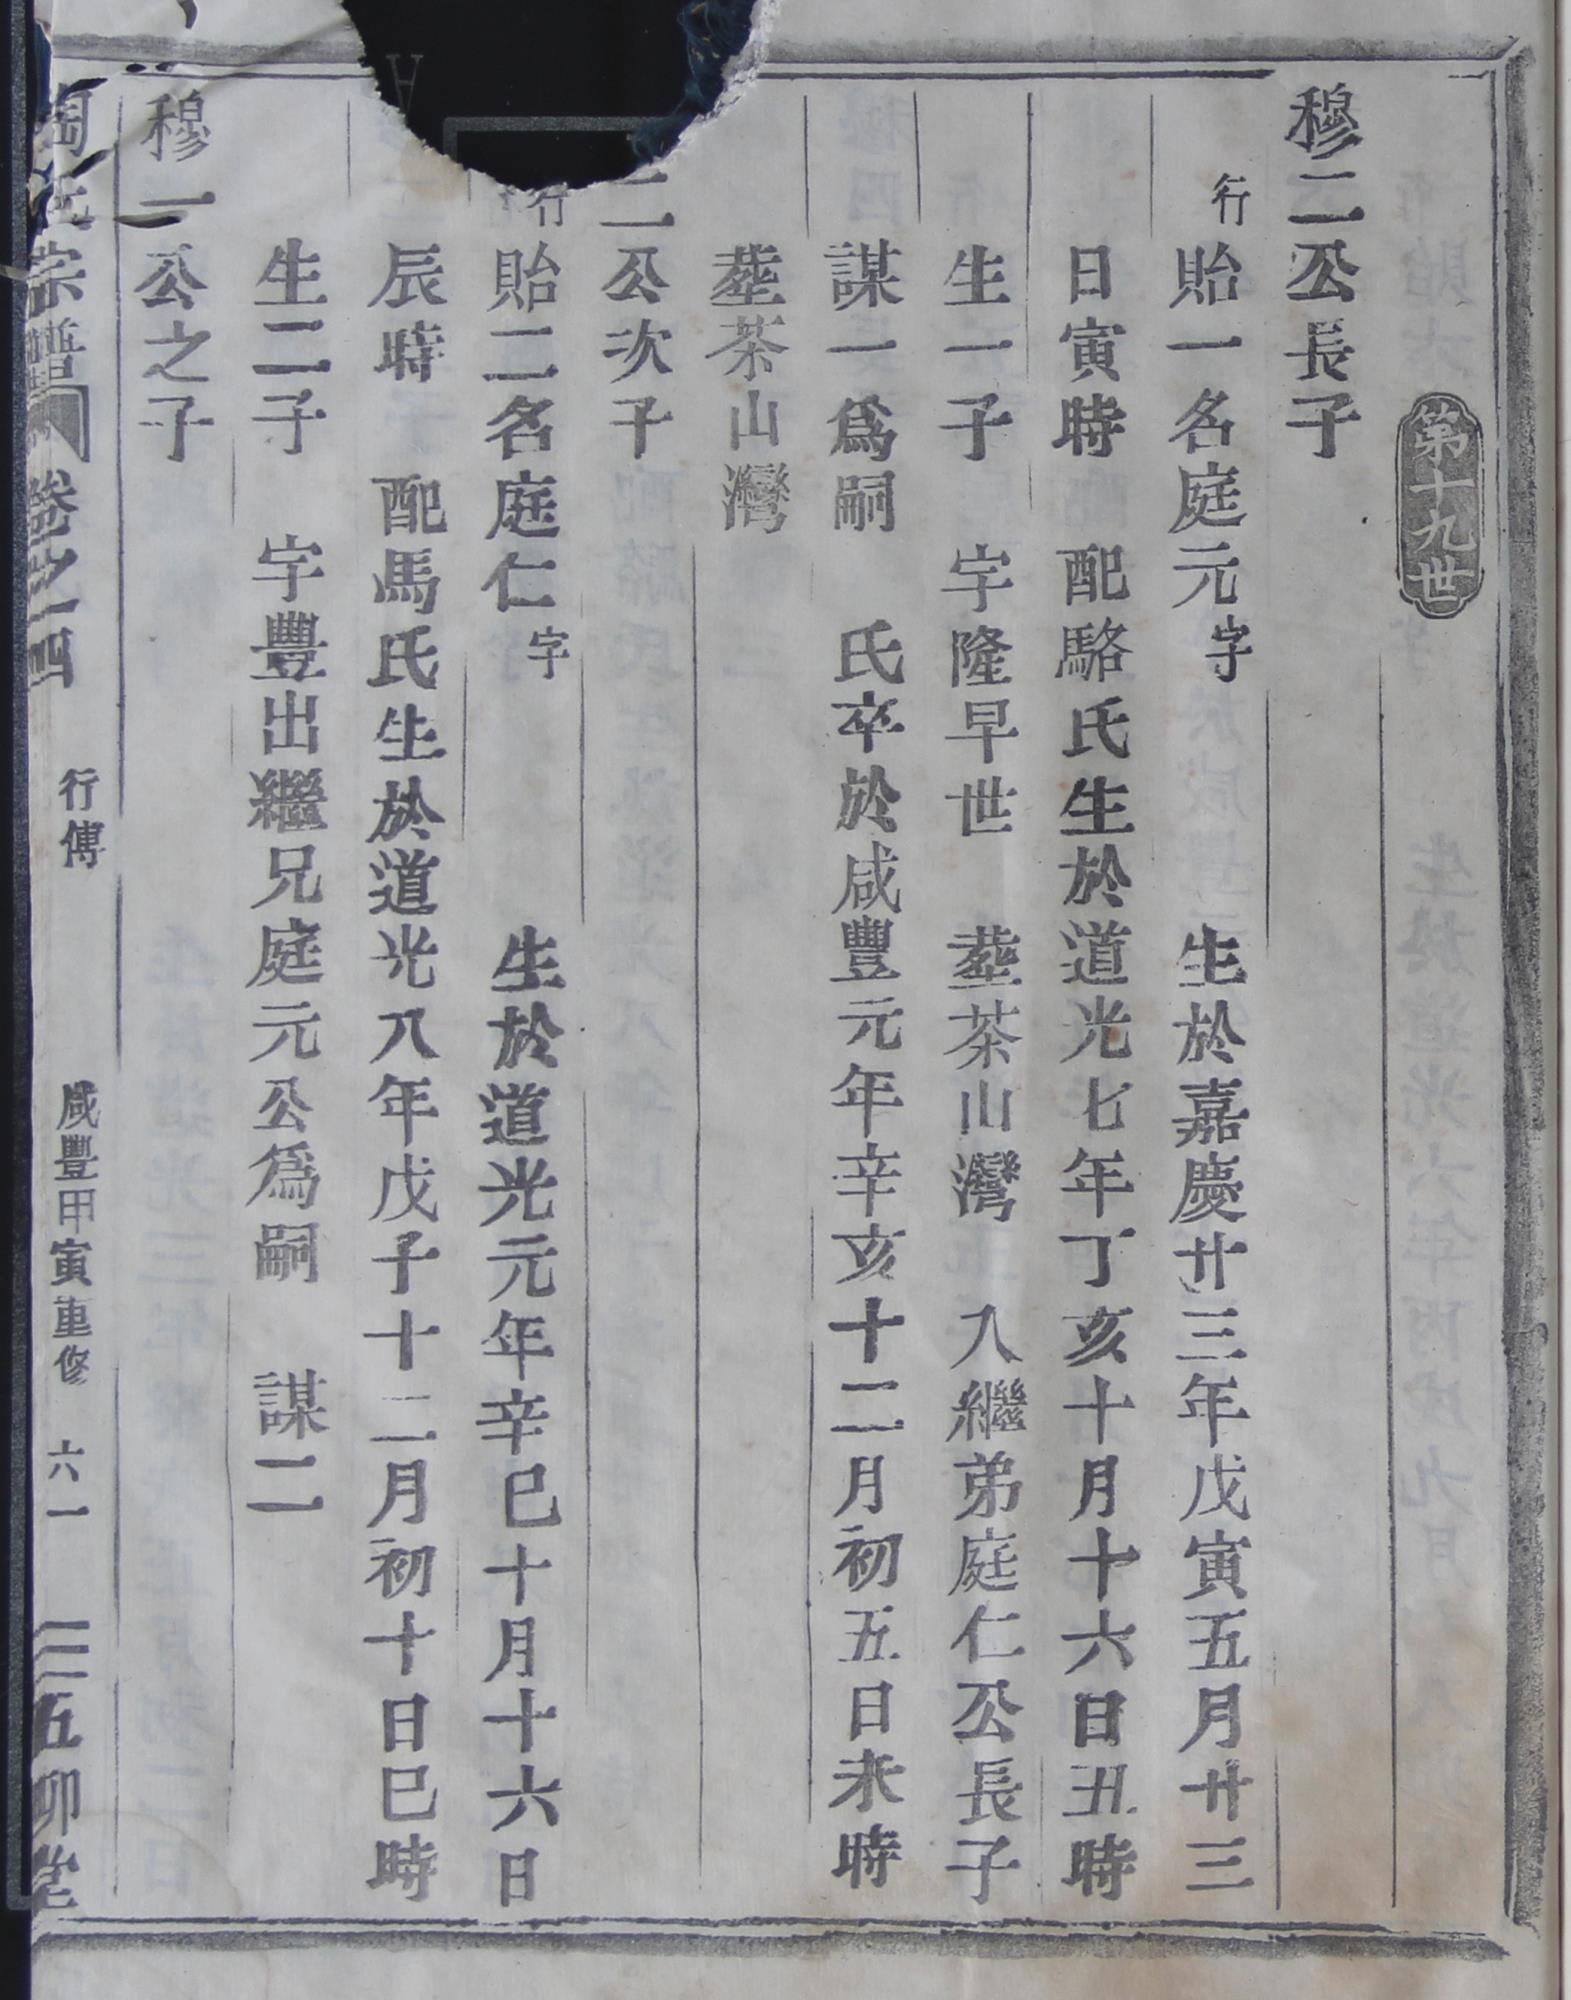 第十九世
穆二公長子
行貽一名庭元字 生於嘉慶廿三年戊寅五月廿三
日寅時 配駱氏生於道光七年丁亥十月十六日丑時
生一子 字隆早世 塟茶山灣 入繼弟庭仁公長子
謀一爲嗣 氏卒於咸豐元年辛亥十二月初五日未時
塟茶山灣
二公次子
行貽二名庭仁字 生於道光元年辛巳十月十六日
辰時 配馬氏生於道光八年戊子十二月初十日巳時
生二子 字豐出繼兄庭元公爲嗣 謀二
穆一公之子
宗譜 卷之四 行傳 咸豐甲寅重修 六一 五柳堂